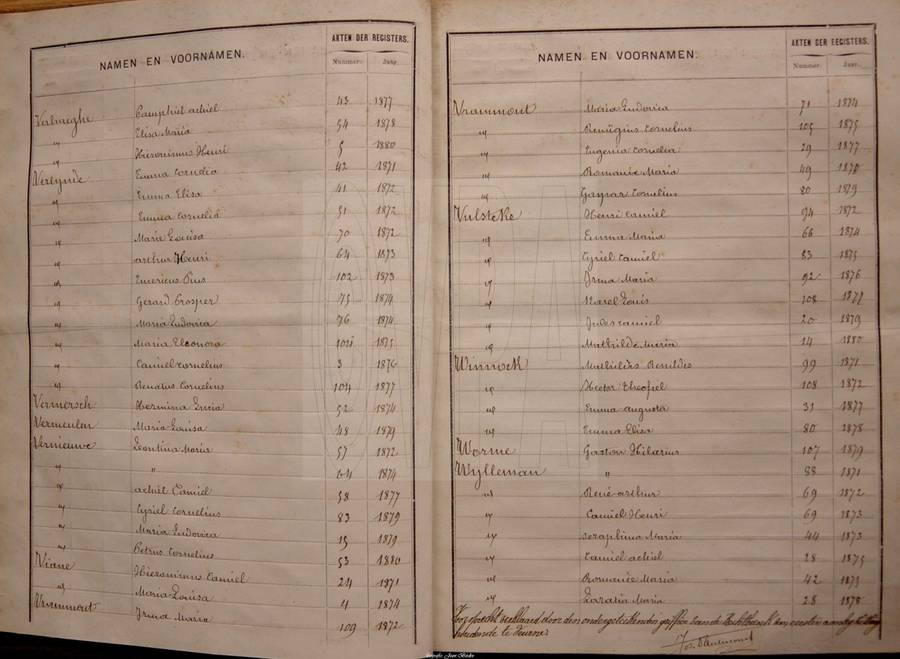 NAMEN EN VOORNAMEN. AKTEN DER REGISTERS.
Nummer. Jaar.
Verbrugghe Camphiel achiel 43 1877
" Elisa Maria 54 1878
" Hieronimus Henri 5 1880
Verlynde Emma Cornelia 42 1871
" Emma Elisa 41 1872
" Emma Cornelia 51 1872
" Maria Louisa 70 1872
" arthur Henri 64 1873
" Emericus Pius 102 1873
" Gerard Prosper 75 1874
" Maria Ludovica 76 1874
" Maria Eleonora 1875
" Camiel cornelius 3 1876
" Renatus Cornelius 104 1877
Vermersch Hermina Lucia 52 1874
Vermeulen Maria Louisa 48 1879
Vernieuwe Leontina Maria 57 1872
" " 64 1874
" achiel Camiel 58 1877
" Cyriel Cornelius 83 1879
" Maria Ludovica 15 1879
" Petrus Cornelius 53 1880
Viane Hieronimus Camiel 24 1871
" Maria Louisa 4 1874
Vrammout Irma Maria 109 1872
NAMEN EN VOORNAMEN. AKTEN DER REGISTERS.
Nummer. Jaar.
Vrammout Maria Ludovica 71 1874
" Remigius Cornelius 105 1875
" Eugenia Cornelia 29 1877
" Romanie Maria 49 1878
" Gaspar Cornelius 80 1879
Vulsteke Henri Camiel 94 1872
" Emma Maria 66 1874
" Cyriel Camiel 83 1875
" Irma Maria 92 1876
" Karel Louis 108 1877
" Jules camiel 20 1879
" Mathilde Maria 14 1880
Winnock Mathildis 99 1871
" Hector Theofiel 108 1872
" Emma augusta 31 1877
" Emma Elisa 80 1878
Worme Gaston Hilarius 107 1879
Wylleman " 88 1871
" René arthur 69 1872
" Camiel Henri 69 1873
" Seraphina Maria 44 1873
" Camiel achiel 28 1875
" Romanie Maria 42 1875
" Maria 28 1878
door den ondergeteekenden griffier van de Rechtbank van eersten aanleg
te Veurne